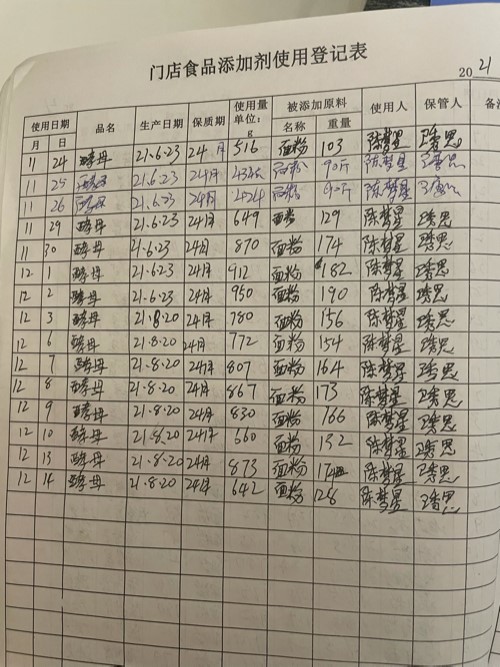 门店食品添加剂使用登记表
20 21
使用日期 品名 生产日期 保质期 使用量 单位: g 被添加原料 使用人 保管人 备注
月 日 名称 重量
11 24 酵母 21.6.23 24月 516 面粉 103 陈梦星
11 25 酵母 21.6.23 24月 面粉 90斤 陈梦星
11 26 酵母 21.6.23 24月 424 面粉 陈梦星
11 29 酵母 21.6.23 24月 649 面粉 129 陈梦星
11 30 酵母 21.6.23 24月 870 面粉 174 陈梦星
12 1 酵母 21.6.23 24月 912 面粉 182 陈梦星
12 2 酵母 21.6.23 24月 950 面粉 190 陈梦星
12 3 酵母 21.8.20 24月 780 面粉 156 陈梦星
12 6 酵母 21.8.20 24月 772 面粉 154 陈梦星
12 7 酵母 21.8.20 24月 807 面粉 164 陈梦星
12 8 酵母 21.8.20 24月 867 面粉 173 陈梦星
12 9 酵母 21.8.20 24月 830 面粉 166 陈梦星
12 10 酵母 21.8.20 24月 660 面粉 132 陈梦星
12 13 酵母 21.8.20 24月 873 面粉 陈梦星
12 14 酵母 21.8.20 24月 642 面粉 128 陈梦星